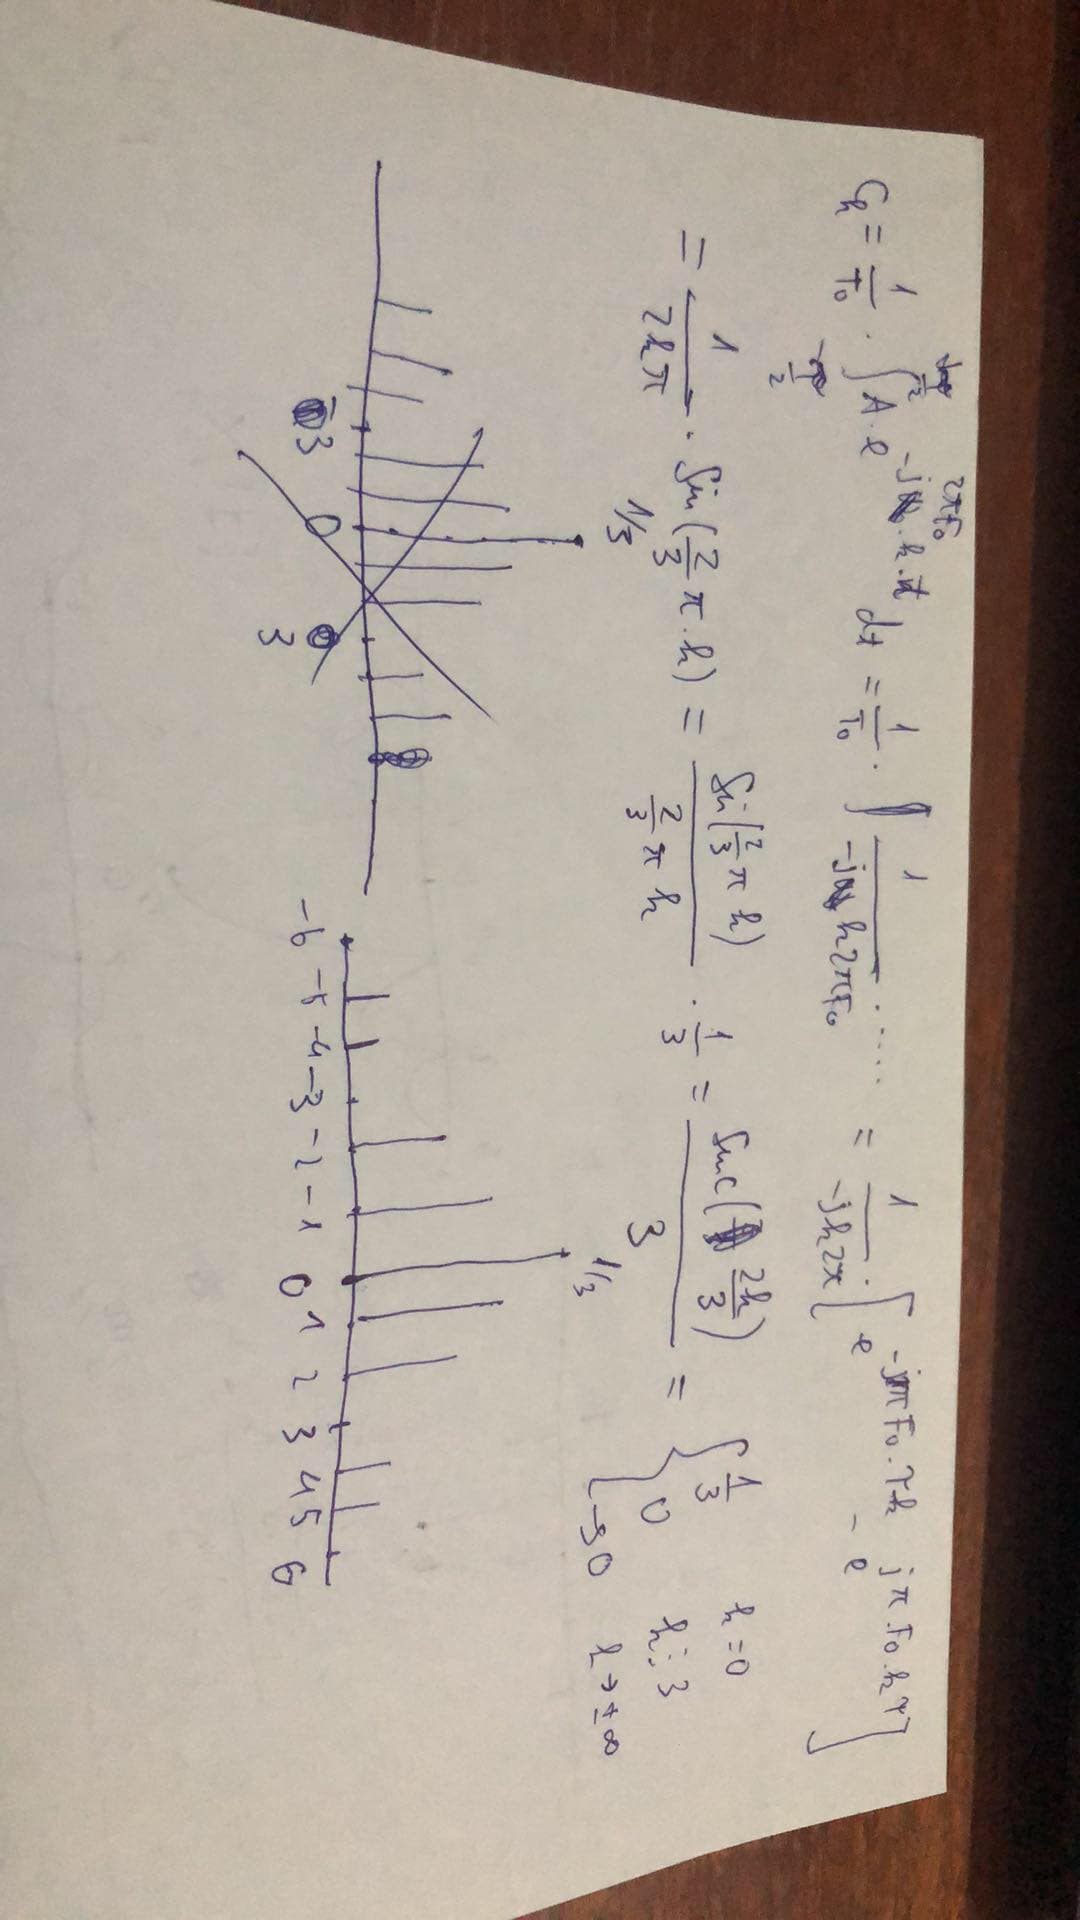 C_k = 1/T₀ · ∫_{-τ/2}^{τ/2} A · e^{-j 2πF₀ · k · t} dt = 1/T₀ · 1/(-j k 2πF₀) · ..... = 1/(-jk2π) · [e^{-jπF₀·τk} - e^{jπ·F₀·kτ}]
= 1/(2kπ) · Sin(2/3 π · k) = Sin(2/3 π k)/(2/3 π k) · 1/3 = Sinc(2k/3)/3 = { 1/3 k = 0
0 k ⋮ 3
→ 0 k → ±∞
1/3 1/3
-3 0 3
-6 -5 -4 -3 -2 -1 0 1 2 3 4 5 6